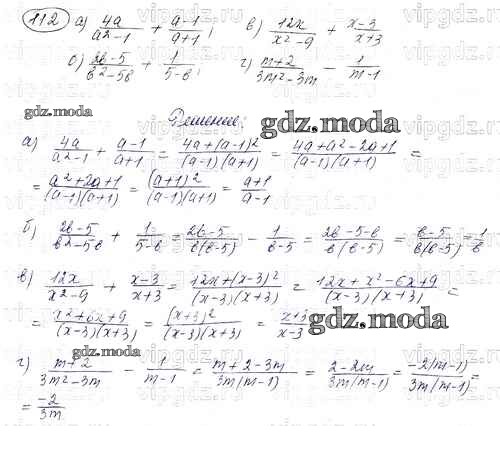 112 а) 4a/(a²-1) + (a-1)/(a+1); в) 12x/(x²-9) + (x-3)/(x+3)
б) (2в-5)/(в²-5в) + 1/(5-в); г) (m+2)/(3m²-3m) - 1/(m-1)
gdz.moda
Решение:
gdz.moda
а) 4a/(a²-1) + (a-1)/(a+1) = (4a+(a-1)²)/((a-1)(a+1)) = (4a+a²-2a+1)/((a-1)(a+1)) =
= (a²+2a+1)/((a-1)(a+1)) = (a+1)²/((a-1)(a+1)) = (a+1)/(a-1)
б) (2в-5)/(в²-5в) + 1/(5-в) = (2в-5)/(в(в-5)) - 1/(в-5) = (2в-5-в)/(в(в-5)) = (в-5)/(в(в-5)) = 1/в
в) 12x/(x²-9) + (x-3)/(x+3) = (12x+(x-3)²)/((x-3)(x+3)) = (12x+x²-6x+9)/((x-3)(x+3)) =
= (x²+6x+9)/((x-3)(x+3)) = (x+3)²/((x-3)(x+3)) = (x+3)/(x-3)
gdz.moda
gdz.moda
г) (m+2)/(3m²-3m) - 1/(m-1) = (m+2-3m)/(3m(m-1)) = (2-2m)/(3m(m-1)) = -2(m-1)/(3m(m-1)) =
= -2/(3m)